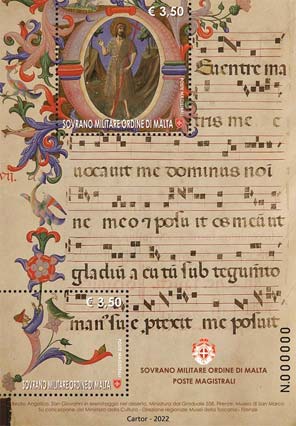 € 3,50
POSTE MAGISTRALI
SOVRANO MILITARE ORDINE DI MALTA
e uentre ma
tris me e
vii.
uocauit me dominus noi
ne meo ⁊ posuit os meũ ut
gladiũ acutũ sub tegumto
manꝰ sue ptexit me posuit
€ 3,50
POSTE MAGISTRALI
SOVRANO MILITARE ORDINE DI MALTA
SOVRANO MILITARE ORDINE DI MALTA
POSTE MAGISTRALI
ND00000
Beato Angelico, San Giovanni in eremitaggio nel deserto, Miniatura del Graduale 558, Firenze, Museo di San Marco
Su concessione del Ministero della Cultura - Direzione regionale Musei della Toscana - Firenze
Cartor - 2022